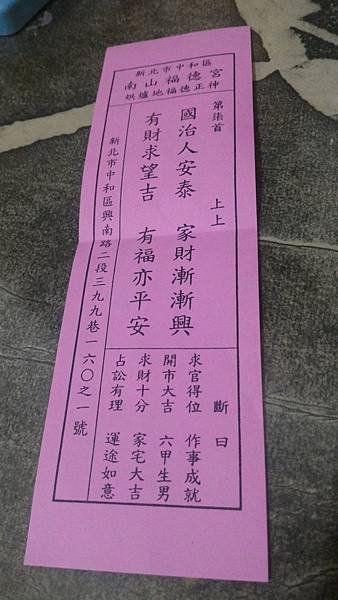 新北市中和區
南山福德宮
烘爐地福德正神
第柒首 上上
國治人安泰 家財漸漸興
有財求望吉 有福亦平安
斷曰
求官得位 作事成就
開市大吉 六甲生男
求財十分 家宅大吉
占訟有理 運途如意
新北市中和區興南路二段三九九巷一六〇之一號